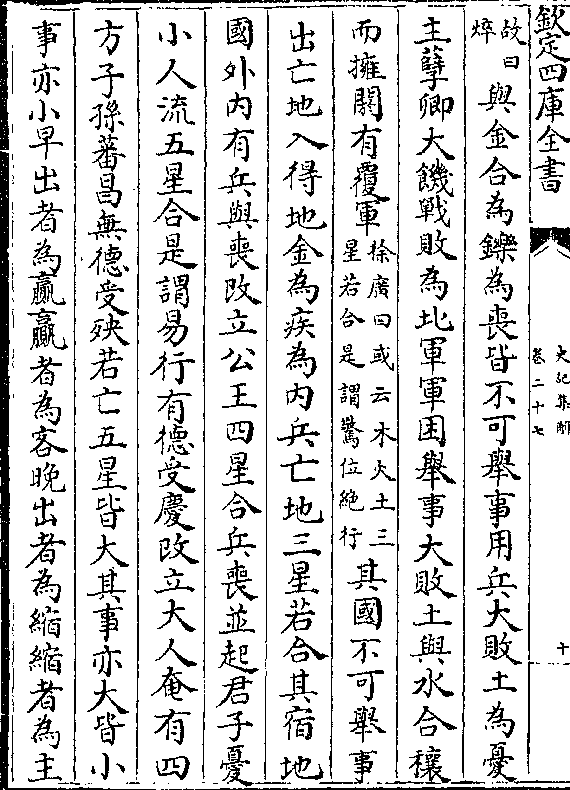 欽定四庫全書
史記集解
卷二十七
十
故曰
焠
與金合為鑠為喪皆不可舉事用兵大敗土為憂
主孽卿大饑戰敗為北軍軍困舉事大敗土與水合穰
而擁閼有覆軍
徐廣曰或云木火土三
星若合是謂驚位絶行
其國不可舉事
出亡地入得地金為疾為内兵亡地三星若合其宿地
國外内有兵與喪改立公王四星合兵喪並起君子憂
小人流五星合是謂易行有德受慶改立大人奄有四
方子孫蕃昌無德受殃若亡五星皆大其事亦大皆小
事亦小早出者為贏贏者為客晚出者為縮縮者為主